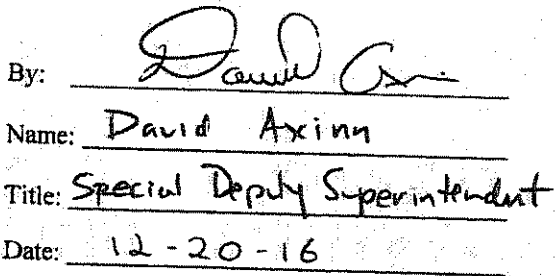 By: David Axinn
Name: David Axinn
Title: Special Deputy Superintendent
Date: 12-20-16